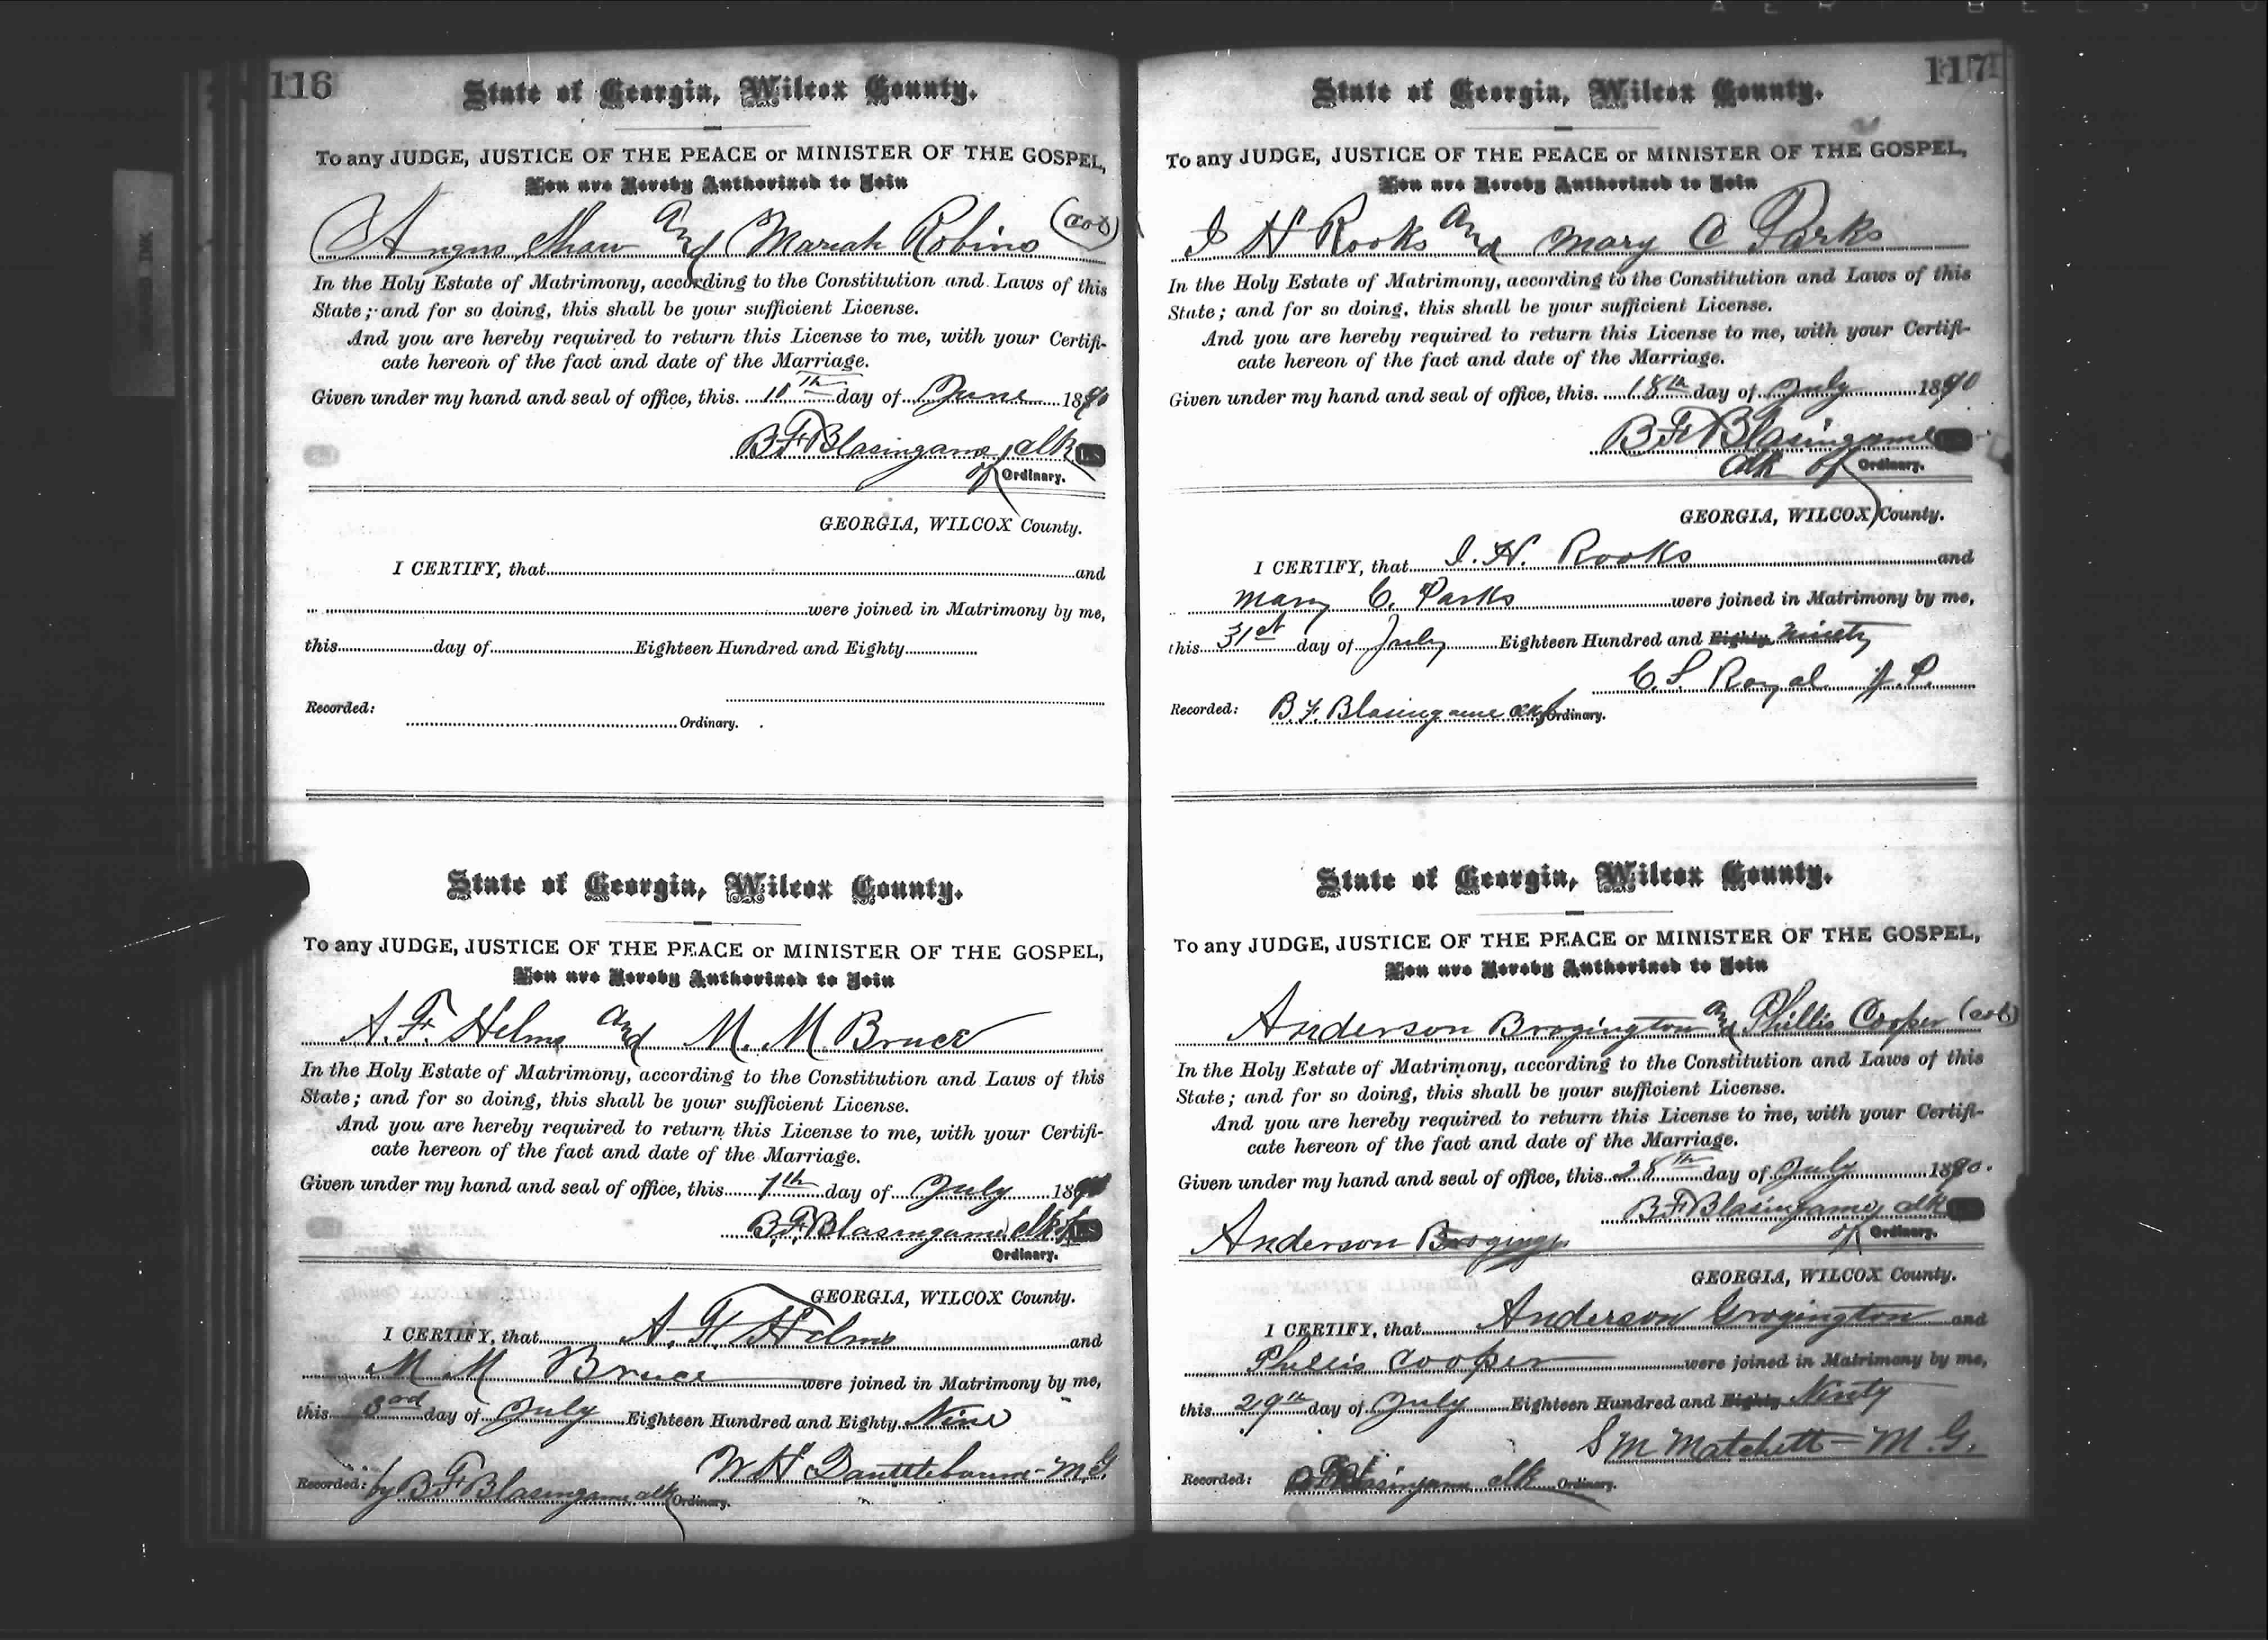 116
State of Georgia, Wilcox County.
To any JUDGE, JUSTICE OF THE PEACE or MINISTER OF THE GOSPEL,
You are Hereby Authorized to Join
Angus Shaw and Mariah Robins (col)
In the Holy Estate of Matrimony, according to the Constitution and Laws of this
State; and for so doing, this shall be your sufficient License.
And you are hereby required to return this License to me, with your Certifi-
cate hereon of the fact and date of the Marriage.
Given under my hand and seal of office, this 10th day of June 1890
B F Blasingame, clk LS
of Ordinary.
GEORGIA, WILCOX County.
I CERTIFY, that and
were joined in Matrimony by me,
this day of Eighteen Hundred and Eighty
Recorded:
Ordinary.
State of Georgia, Wilcox County.
To any JUDGE, JUSTICE OF THE PEACE or MINISTER OF THE GOSPEL,
You are Hereby Authorized to Join
A. F. Helms and M. M. Bruce
In the Holy Estate of Matrimony, according to the Constitution and Laws of this
State; and for so doing, this shall be your sufficient License.
And you are hereby required to return this License to me, with your Certifi-
cate hereon of the fact and date of the Marriage.
Given under my hand and seal of office, this day of July 18
B. F. Blasingame clk of LS
Ordinary.
GEORGIA, WILCOX County.
I CERTIFY, that A. F. Helms and
M M Bruce were joined in Matrimony by me,
this 3rd day of July Eighteen Hundred and Eighty Nine
W H M.G.
Recorded: by B F Blasingame clk Ordinary.
117
State of Georgia, Wilcox County.
To any JUDGE, JUSTICE OF THE PEACE or MINISTER OF THE GOSPEL,
You are Hereby Authorized to Join
I H Rooks and Mary C Parks
In the Holy Estate of Matrimony, according to the Constitution and Laws of this
State; and for so doing, this shall be your sufficient License.
And you are hereby required to return this License to me, with your Certifi-
cate hereon of the fact and date of the Marriage.
Given under my hand and seal of office, this 18th day of July 1890
B F Blasingame
clk of Ordinary.
GEORGIA, WILCOX County.
I CERTIFY, that I. H. Rooks and
Mary C. Parks were joined in Matrimony by me,
this 31st day of July Eighteen Hundred and Eighty Ninety
C. S. Royal J. P.
Recorded: B. F. Blasingame clk Ordinary.
State of Georgia, Wilcox County.
To any JUDGE, JUSTICE OF THE PEACE or MINISTER OF THE GOSPEL,
You are Hereby Authorized to Join
Anderson Brogington and Phillis Cooper (col)
In the Holy Estate of Matrimony, according to the Constitution and Laws of this
State; and for so doing, this shall be your sufficient License.
And you are hereby required to return this License to me, with your Certifi-
cate hereon of the fact and date of the Marriage.
Given under my hand and seal of office, this 28th day of July 1890.
B F Blasingame, clk
Anderson of Ordinary.
GEORGIA, WILCOX County.
I CERTIFY, that Anderson Grogington and
Phillis Cooper were joined in Matrimony by me,
this 29th day of July Eighteen Hundred and Eighty Ninty
S M Matchett = M.G.
Recorded: Blasingame clk Ordinary.